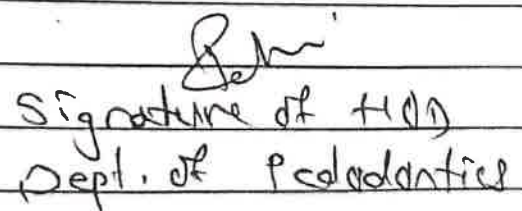 Signature of HOD
Dept. of Pedodontics